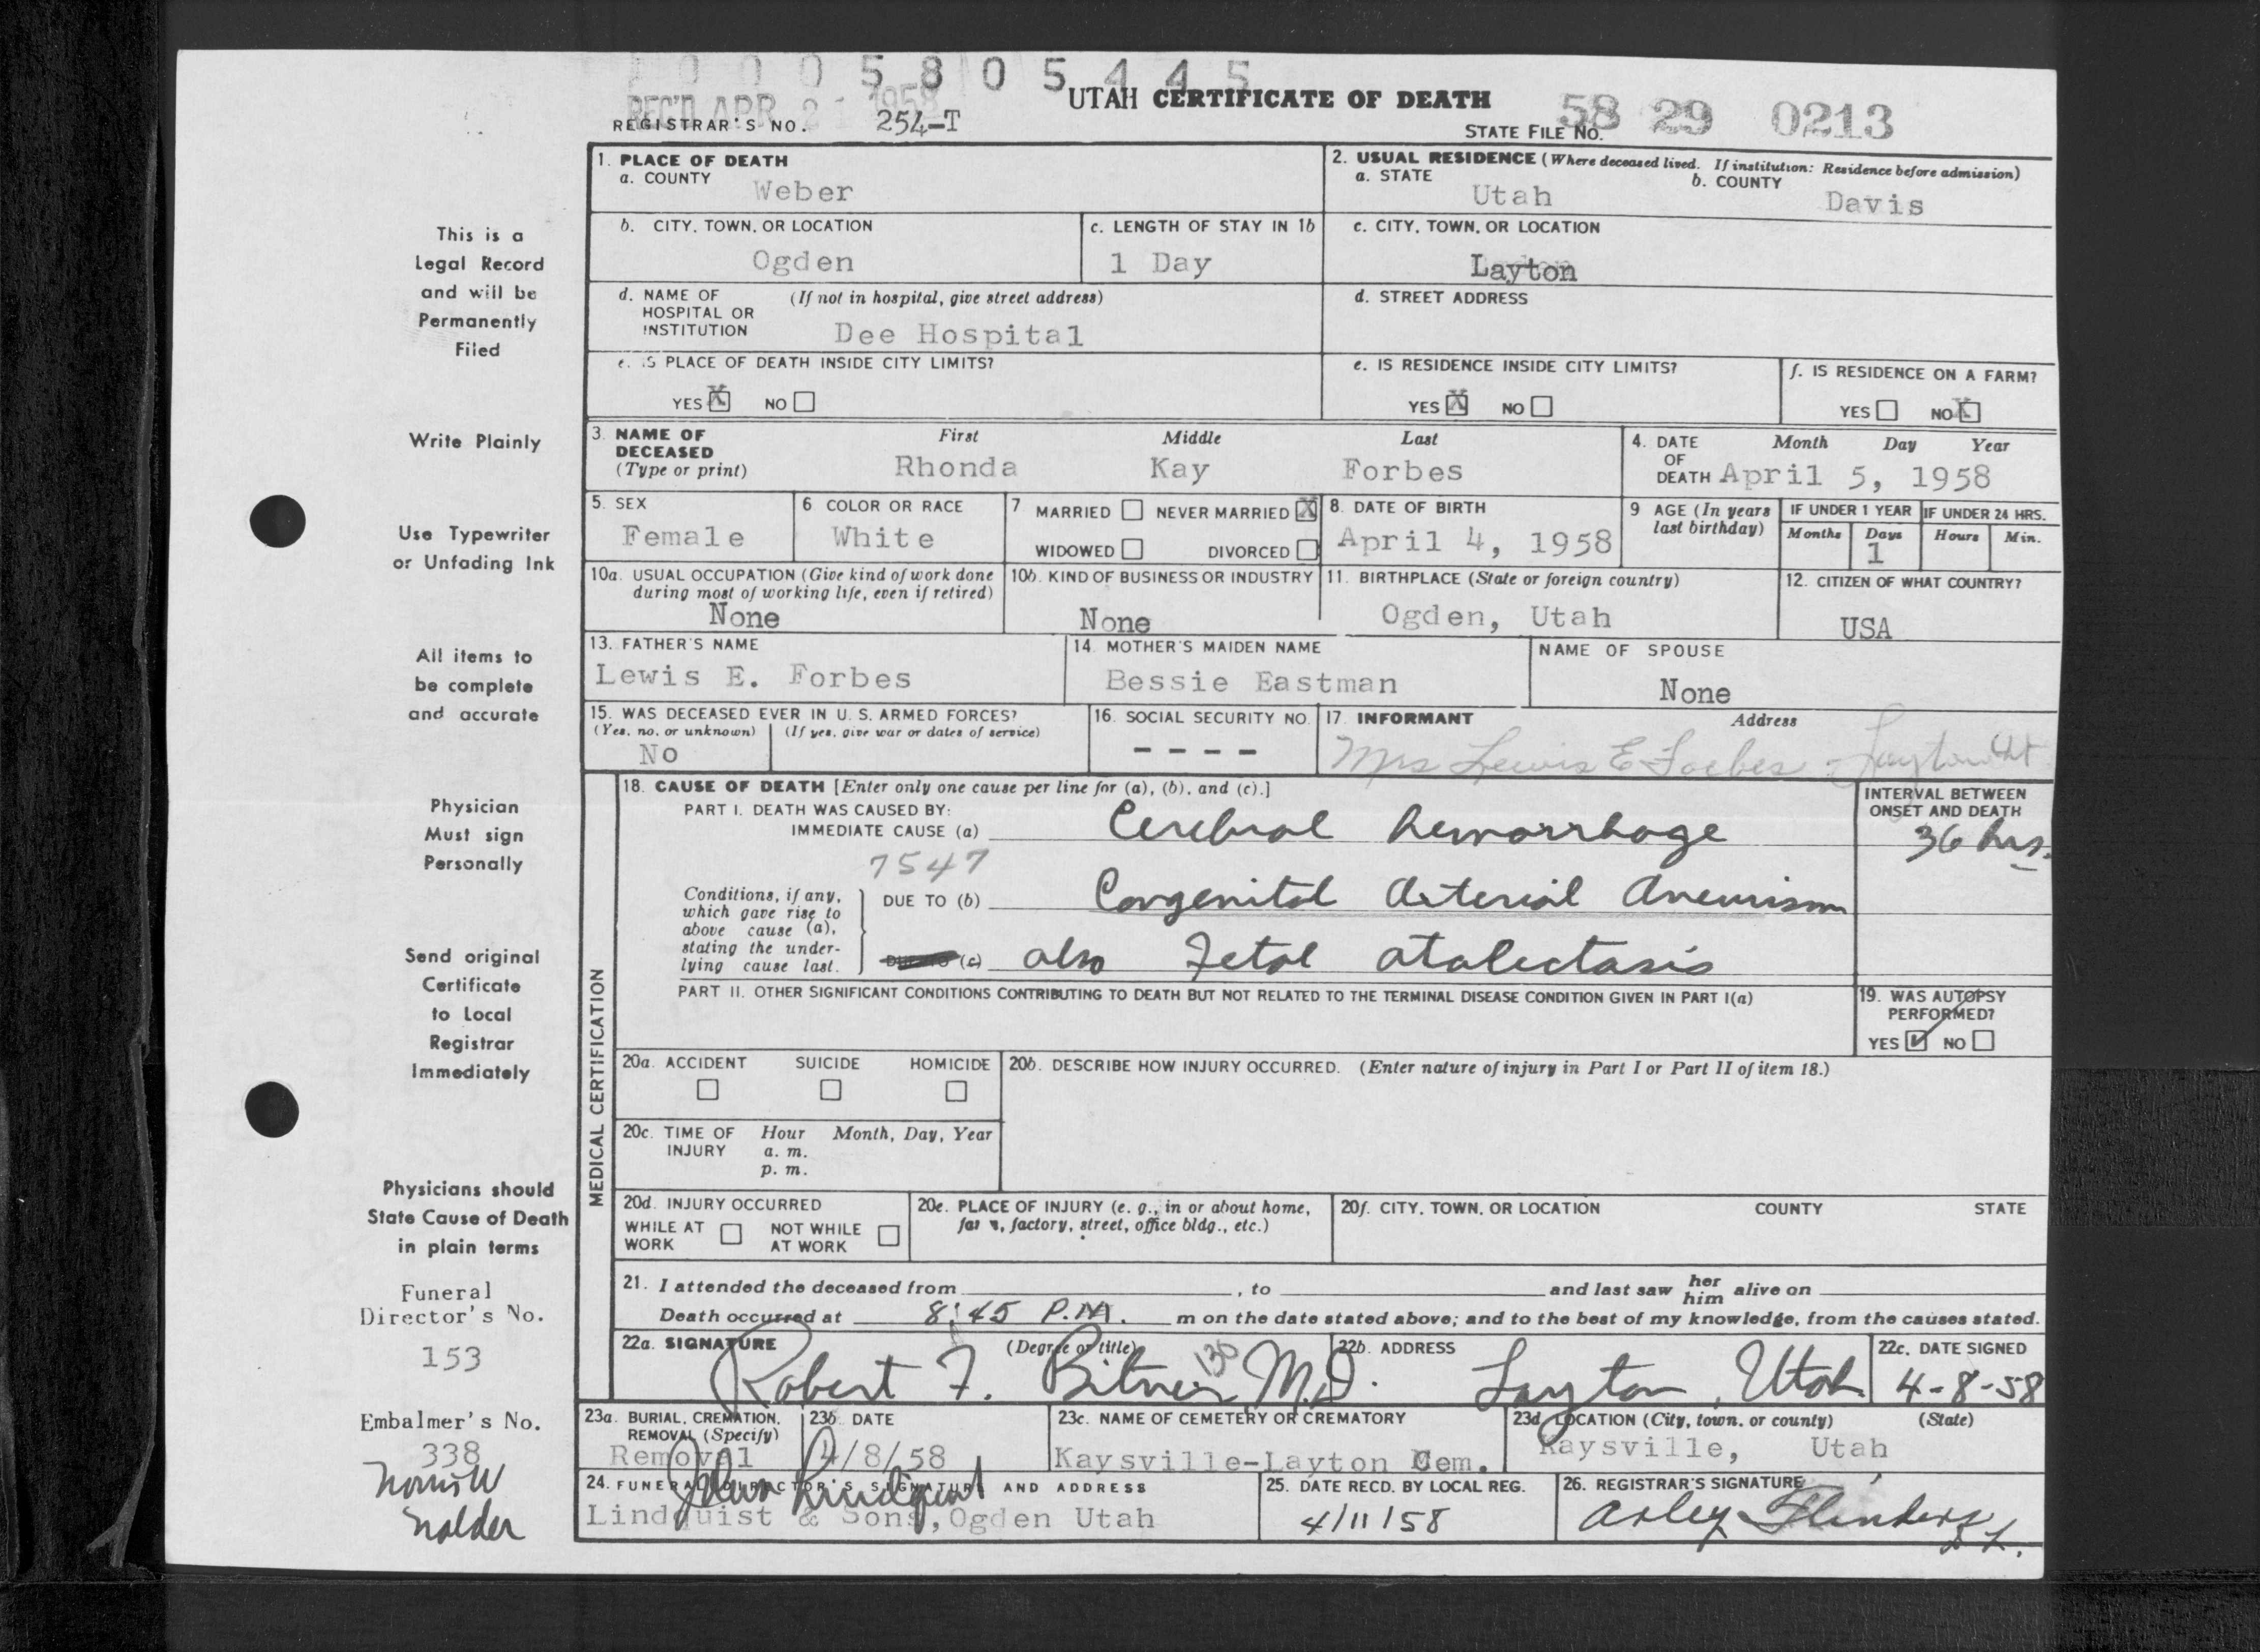 0 0 0 5 8 0 5 4 4 5
REC'D APR 21 1958
UTAH CERTIFICATE OF DEATH
REGISTRAR'S NO. 254-T
STATE FILE NO. 58 29 0213
This is a
Legal Record
and will be
Permanently
Filed
Write Plainly
Use Typewriter
or Unfading Ink
All items to
be complete
and accurate
Physician
Must sign
Personally
Send original
Certificate
to Local
Registrar
Immediately
Physicians should
State Cause of Death
in plain terms
Funeral
Director's No.
153
Embalmer's No.
338
Norris W
Nalder
1. PLACE OF DEATH
a. COUNTY
Weber
2. USUAL RESIDENCE (Where deceased lived. If institution: Residence before admission)
a. STATE
Utah
b. COUNTY
Davis
b. CITY, TOWN, OR LOCATION
Ogden
c. LENGTH OF STAY IN 1b
1 Day
c. CITY, TOWN, OR LOCATION
Layton
d. NAME OF (If not in hospital, give street address)
HOSPITAL OR
INSTITUTION
Dee Hospital
d. STREET ADDRESS
e. IS PLACE OF DEATH INSIDE CITY LIMITS?
YES X NO
e. IS RESIDENCE INSIDE CITY LIMITS?
YES X NO
f. IS RESIDENCE ON A FARM?
YES NO X
3. NAME OF First Middle Last
DECEASED
(Type or print) Rhonda Kay Forbes
4. DATE Month Day Year
OF
DEATH April 5, 1958
5. SEX
Female
6 COLOR OR RACE
White
7 MARRIED NEVER MARRIED X
WIDOWED DIVORCED
8. DATE OF BIRTH
April 4, 1958
9 AGE (In years
last birthday)
IF UNDER 1 YEAR IF UNDER 24 HRS.
Months Days Hours Min.
1
10a. USUAL OCCUPATION (Give kind of work done
during most of working life, even if retired)
None
10b. KIND OF BUSINESS OR INDUSTRY
None
11. BIRTHPLACE (State or foreign country)
Ogden, Utah
12. CITIZEN OF WHAT COUNTRY?
USA
13. FATHER'S NAME
Lewis E. Forbes
14. MOTHER'S MAIDEN NAME
Bessie Eastman
NAME OF SPOUSE
None
15. WAS DECEASED EVER IN U. S. ARMED FORCES?
(Yes, no, or unknown) (If yes, give war or dates of service)
No
16. SOCIAL SECURITY NO.
- - - -
17. INFORMANT Address
Mrs Lewis E Forbes - Layton Ut
MEDICAL CERTIFICATION
18. CAUSE OF DEATH [Enter only one cause per line for (a), (b), and (c).]
PART I. DEATH WAS CAUSED BY:
IMMEDIATE CAUSE (a) Cerebral hemorrhage
INTERVAL BETWEEN
ONSET AND DEATH
36 hrs.
7547
Conditions, if any,
which gave rise to
above cause (a),
stating the under-
lying cause last.
DUE TO (b) Congenital Arterial Aneurism
DUE TO (c) also Fetal atalectasis
PART II. OTHER SIGNIFICANT CONDITIONS CONTRIBUTING TO DEATH BUT NOT RELATED TO THE TERMINAL DISEASE CONDITION GIVEN IN PART I(a)
19. WAS AUTOPSY
PERFORMED?
YES ✓ NO
20a. ACCIDENT SUICIDE HOMICIDE
20b. DESCRIBE HOW INJURY OCCURRED. (Enter nature of injury in Part I or Part II of item 18.)
20c. TIME OF Hour Month, Day, Year
INJURY a. m.
p. m.
20d. INJURY OCCURRED
WHILE AT NOT WHILE
WORK AT WORK
20e. PLACE OF INJURY (e. g., in or about home,
far , factory, street, office bldg., etc.)
20f. CITY, TOWN, OR LOCATION COUNTY STATE
21. I attended the deceased from , to and last saw her him alive on
Death occurred at 8:45 P.M. m on the date stated above; and to the best of my knowledge, from the causes stated.
22a. SIGNATURE (Degree or title)
Robert F. Bitner M.D.
130
22b. ADDRESS
Layton, Utah
22c. DATE SIGNED
4-8-58
23a. BURIAL, CREMATION,
REMOVAL (Specify)
Removal
23b DATE
4/8/58
23c. NAME OF CEMETERY OR CREMATORY
Kaysville-Layton Cem.
23d. LOCATION (City, town, or county) (State)
Kaysville, Utah
24. FUNERAL DIRECTOR'S SIGNATURE AND ADDRESS
John Lindquist
Lindquist & Sons, Ogden Utah
25. DATE RECD. BY LOCAL REG.
4/11/58
26. REGISTRAR'S SIGNATURE
Arley Flinders